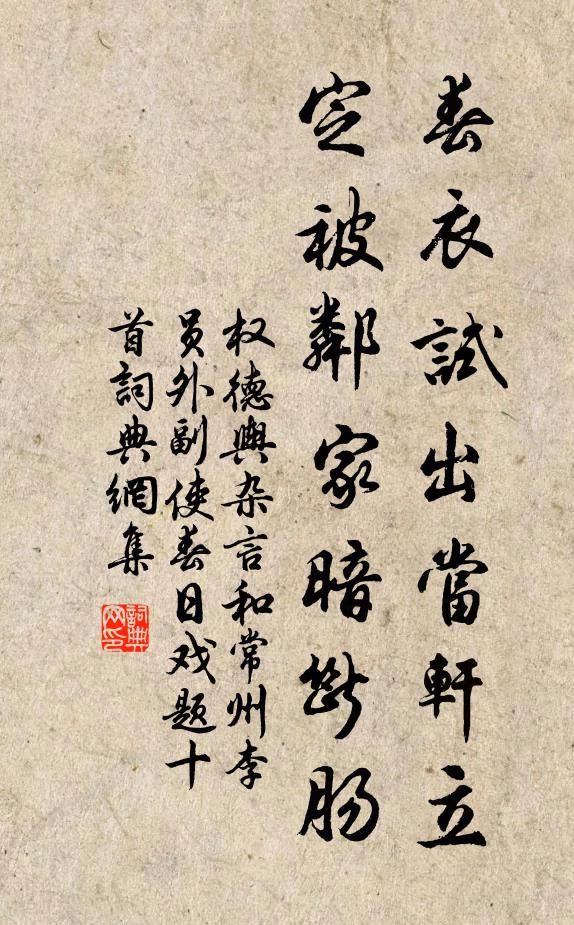 春衣試出當軒立
定被鄰家暗斷腸
权德輿杂言和常州李
员外副使春日戏题十
首詞典網集
詞典
网印